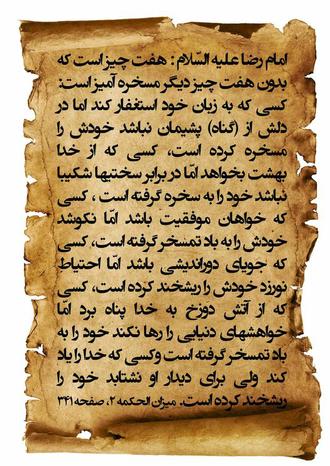 امام رضا علیه السّلام: هفت چیز است که
بدون هفت چیز دیگر مسخره آمیز است:
کسی که به زبان خود استغفار کند اما در
دلش از (گناه) پشیمان نباشد خودش را
مسخره کرده است، کسی که از خدا
بهشت بخواهد امّا در برابر سختیها شکیبا
نباشد خود را به سخره گرفته است ، کسی
که خواهان موفقیت باشد امّا نکوشد
خودش را به باد تمسخر گرفته است، کسی
که جویای دوراندیشی باشد امّا احتیاط
نورزد خودش را ریشخند کرده است، کسی
که از آتش دوزخ به خدا پناه برد امّا
خواهشهای دنیایی را رها نکند خود را به
باد تمسخر گرفته است وکسی که خدا را یاد
کند ولی برای دیدار او نشتابد خود را
ریشخند کرده است. میزان الحکمه ۲، صفحه ۳۴۱